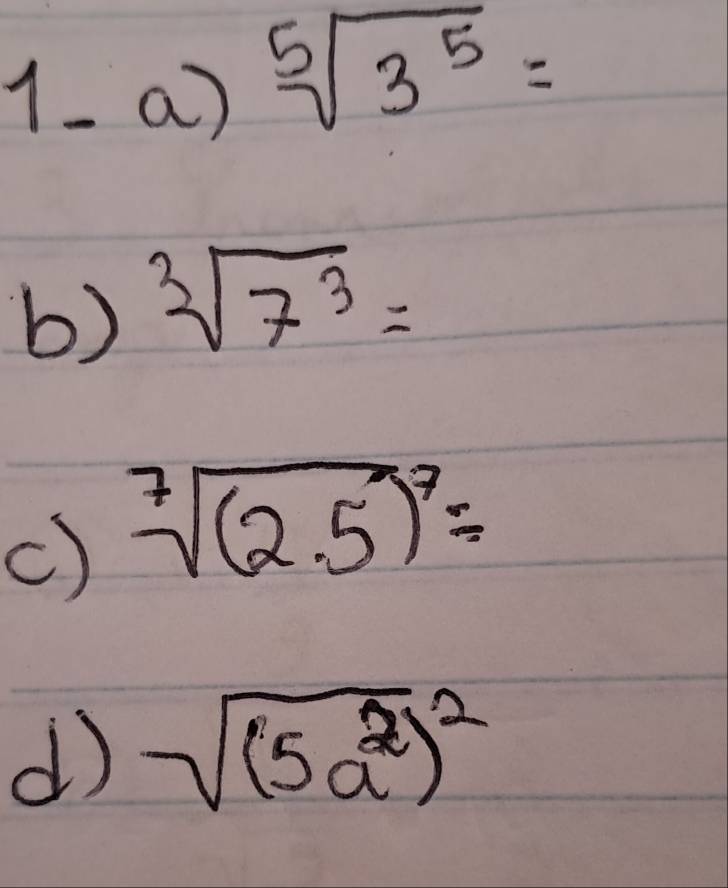 1- a) ⁵√3⁵ =
b) ³√7³ =
c) ⁷√(2.5)⁷ =
d) √(5a²)²